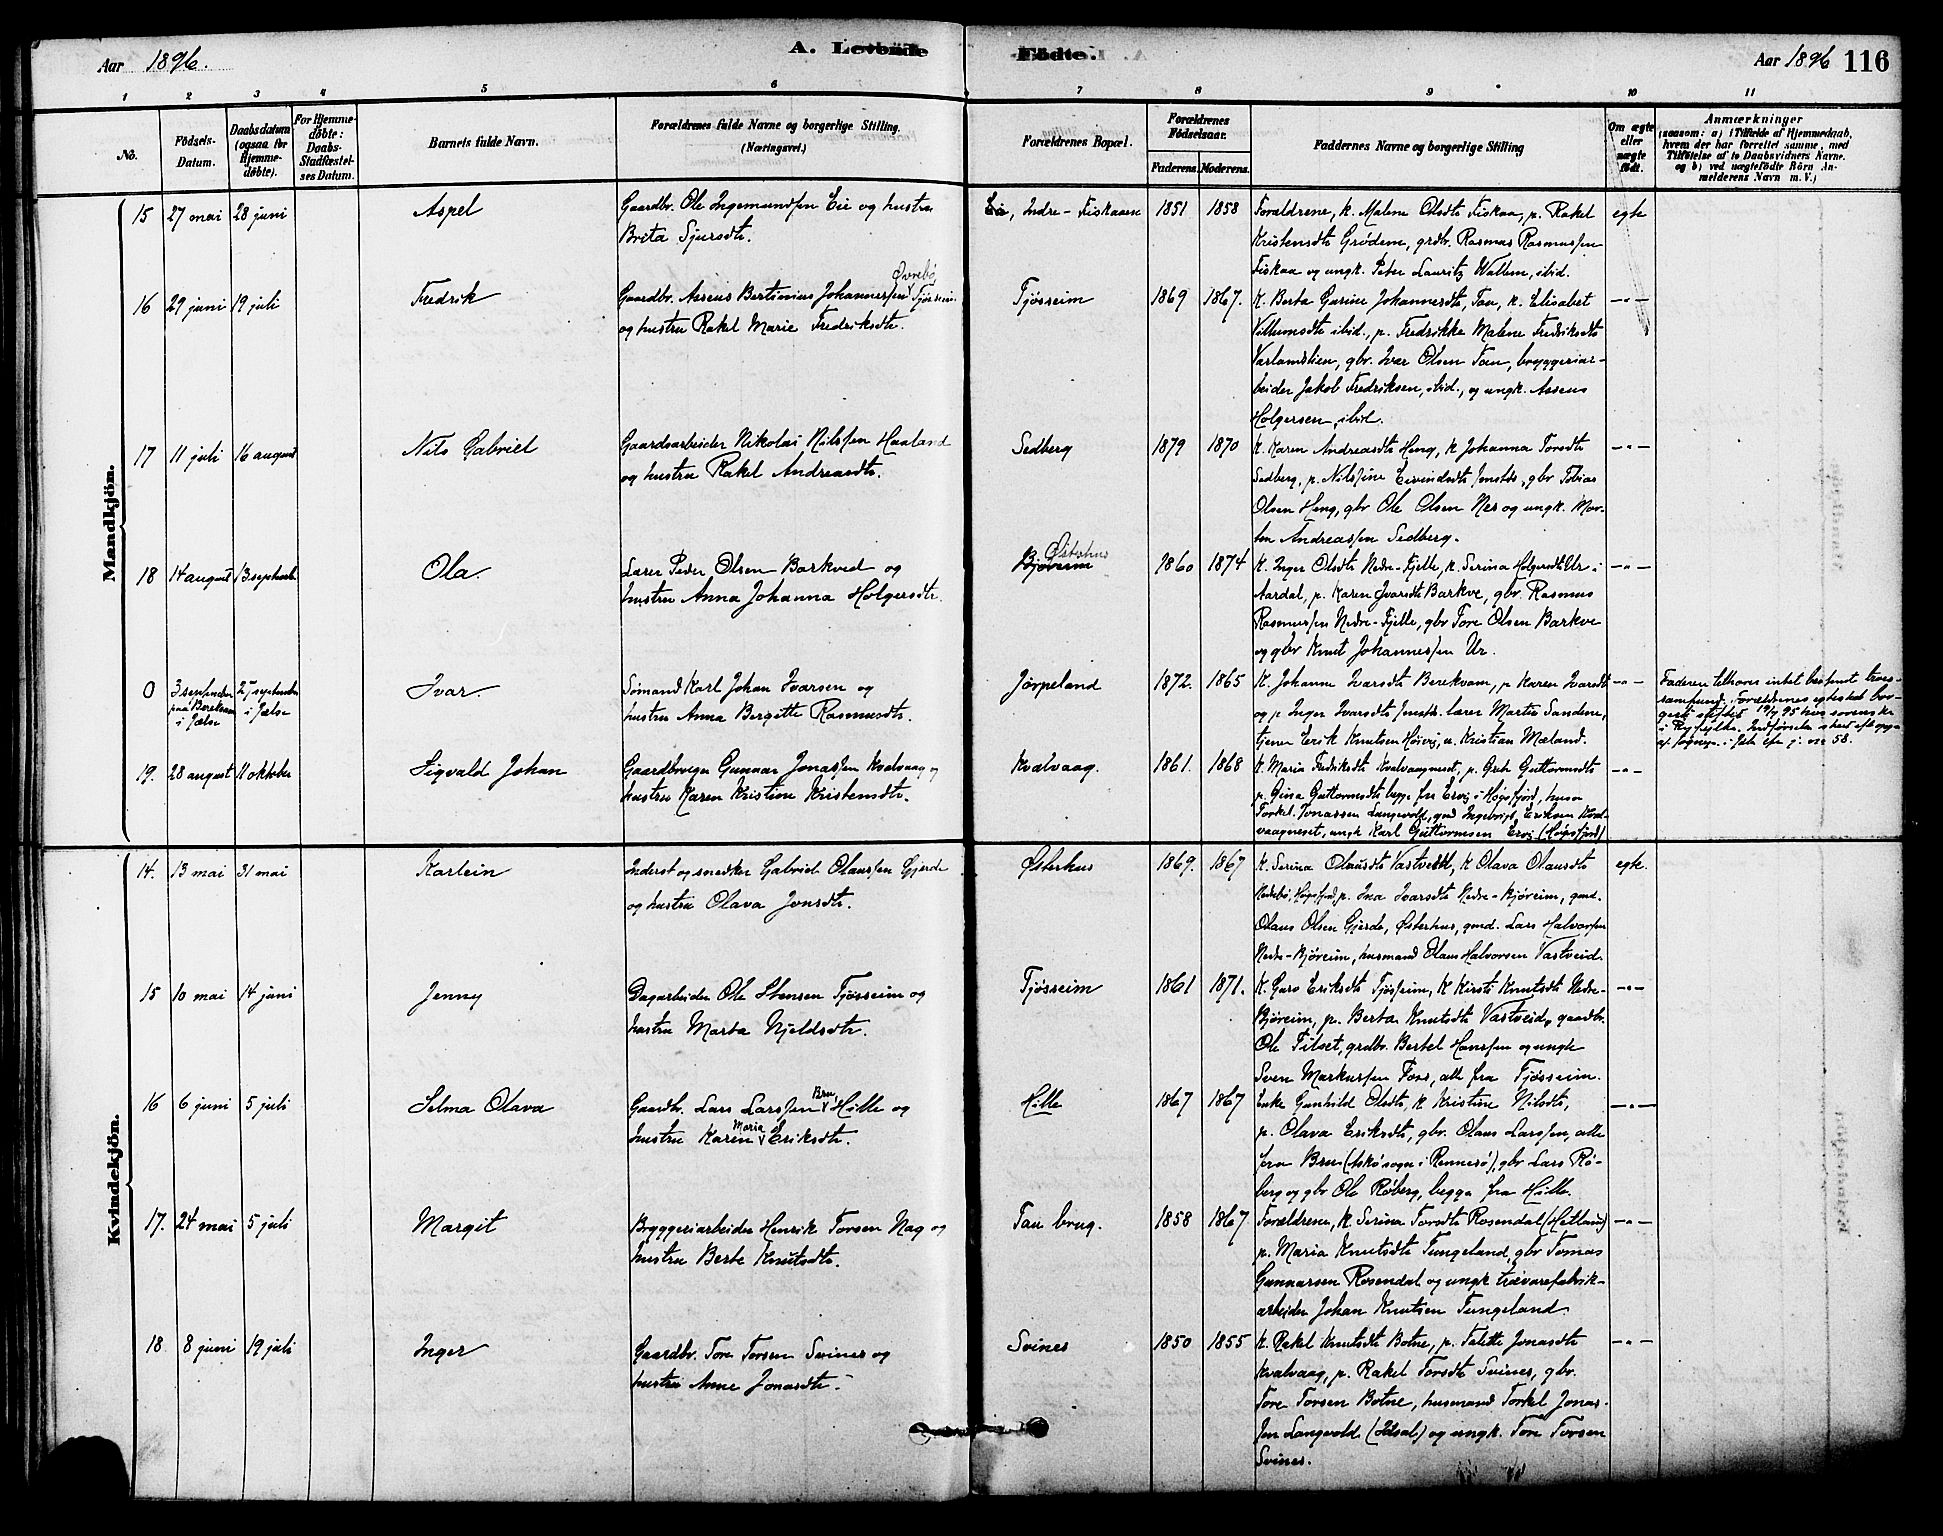 Aar 1896.
A. Levende
Födte.
Aar 1896
116
1 2 3 4 5 6 7 8 9 10 11
No.
Födsels-Datum.
Daabsdatum (ogsaa for Hjemmedøbte).
For Hjemmedøbte: Daabs-Stadfæstelses Datum.
Barnets fulde Navn.
Forældrenes fulde Navne og borgerlige Stilling. (Næringsvei.)
Forældrenes Bopæl.
Forældrenes Fødselsaar.
Faderens. Moderens.
Faddernes Navne og borgerlige Stilling
Om ægte eller uægte født.
Anmærkninger
(saasom: a) i Tilfælde af Hjemmedaab,
hvem der har forrettet samme, med
Tilföielse af to Daabsvidners Navne.
og b) ved uægtefödte Börn An-
melderens Navn m. V.)
Mandkjön.
15 27 mai 28 juni Aspel
Gaardbr. Ole Ingemundsen Eie og hustru
Brita Sjursdtr.
Eie, Indre-Fiskaaen 1851 1858
Forældrene, k. Malene Olsdtr Fiskaa, p. Rakel
Kristensdtr Grødem, grdbr. Rasmus Rasmussen
Fiskaa og ungk. Peter Lauritz Wallem, ibid.
egte
16 29 juni 19 juli Fredrik
Øvrebø
Gaardbr. Asseus Bertinius Johannessen Tjøsseim
og hustru Rakel Marie Fredriksdtr.
Tjøsseim 1869 1867.
K. Berta Gurine Johannesdtr, Tau, k. Elisabet
Villumsdtr ibid., p. Fredrikke Malene Fredriksdtr
Varlandslien, gbr. Ivar Olsen Tau, bryggeriar-
beider Jakob Fredriksen, ibid., og ungk. Asseus
Holgersen, ibid.
—"—
17 11 juli 16 august Nils Gabriel
Gaardsarbeider Nikolai Nilssen Haaland
og hustru Rakel Andreasdtr.
Sedberg 1879 1870
K. Karen Andreasdtr Heng, k Johanna Torsdtr
Sedberg, p. Nilssine Eivindsdtr Jonstds, gbr Tobias
Olsen Heng, gbr Ole Olsen Nes og ungk. Mor-
ten Andreassen Sedberg.
—"—
18 14 august 13 septemb. Ola.
Lærer Peder Olsen Barkved og
hustru Anna Johanna Holgersdtr.
Østerhus
Bjøreim 1860 1874
K. Inger Olsdtr Nedre-Fjelle, k. Serina Holgersdtr Ur i
Aardal, p. Karen Ivarsdtr Barkve, gbr. Rasmus
Rasmussen Nedre-Fjelle, gbr Tore Olsen Barkve
og gbr Knut Johannessen Ur.
—"—
0 3 september paa Berekvam i Jelse 27 september i Jelse Ivar.
Sømand Karl Johan Ivarsen og
hustru Anna Bergitte Rasmusdtr.
Jørpeland 1872. 1865
K. Johanne Ivarsdtr Berekvam, p Karen Ivarsdtr
og p Inger Ivarsdtr, lærer Martin Sandene,
tjener Erik Knutsen Høivig, u. Kristian Mæland.
—"—
Faderen tilhører intet bestemt tros-
samfund. Forældrenes egteskab bor-
gerl. stiftet 19/7 95 hos sorenskr
i Ryfylke. Indførselen sked eft opga
af sognepr. i Jelse
19. 28 august 11 oktober Sigvald Johan
Gaardbruger Gunnar Jonassen Kvalvaag og
hustru Karen Kristine Kristensdtr.
Kvalvaag. 1861. 1868
K. Maria Fredriksdtr Kvalvaagneset, p. Grete Guttormsdtr
p. Gina Guttormsdtr begge fra Ervig i Høgsfjord, husm
Torkel Jonassen Langevold, gmd Ingebrigt Eriksen Kval-
vaagneset, ungk Karl Guttormsen Ervig (Høgsfjord)
—"—
Kvindekjön.
14. 13 mai 31 mai Karlein
Inderst og snedker Gabriel Olaussen Gjerde
og hustru Olava Jonsdtr.
Østerhus 1869. 1867
K. Serina Olausdtr Vastveid, k Olava Olausdtr
Nedrebø, Høgsfjord, p. Ina Ivarsdtr Nedre-Bjøreim, gmd.
Olaus Olsen Gjerde, Østerhus, gmd. Lars Halvorsen
Nedre-Bjøreim, husmand Olaus Halvorsen Vastveid.
egte.
15 10 mai 14 juni Jenny
Dagarbeider Ole Stensen Tjøsseim og
hustru Marta Njeldsdtr.
Tjøsseim 1861 1871.
K. Guro Eriksdtr Tjøsseim, k Kirsti Knutsdtr Nedre-
Bjøreim, p. Berta Knutsdtr Vastveid, gaardbr.
Ole Tilset, grdbr. Bertel Hanssen og ungk
Sven Markussen Foss, alle fra Tjøsseim.
—"—
16 6 juni 5 juli Selma Olava
Bru,
Gaardbr. Lars Larssen Hille og
Maria
hustru Karen Eriksdtr.
Hille 1867 1867
Enke Gunhild Olsdtr, k Kristine Nilsdtr,
p. Olava Eriksdtr, gbr. Olaus Larssen, alle
fra Bru (Askø sogn i Rennesø), gbr Lars Rø-
berg og gbr Ole Røberg, begge fra Hille.
—"—
17. 24 mai 5 juli Margit
Bryggeriarbeider Henrik Torsen Nag og
hustru Berte Knutsdtr.
Tau brug. 1858 1867
Forældrene, k. Serina Torsdtr Rosendal (Hetland)
p. Maria Knutsdtr Tungeland, gbr Tomas
Gunnarsen Rosendal og ungk trævarefabrik-
arbeider Johan Knutsen Tungeland
—"—
18 8 juni 19 juli Inger
Gaardbr. Tore Torsen Svines og
hustru Anne Jonasdtr.
Svines 1850 1855
K. Rakel Knutsdtr Botne, p. Talette Jonasdtr
Kvalvaag, p. Rakel Torsdtr Svines, gbr.
Tore Torsen Botne, husmand Torkel Jonas-
sen Langevold (Idsal) og ungk. Tore Torsen
Svines.
—"—